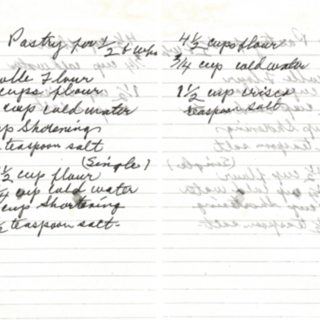 Pastry for 1/2
Flour
cups flour
cup cold water
Shortening
teaspoon salt
(Single)
1/2 cup flour
cup cold water
cup Shortening
teaspoon salt
4 1/2 cups flour
3/4 cup cold water
1 1/2 cup crisco
teaspoon salt